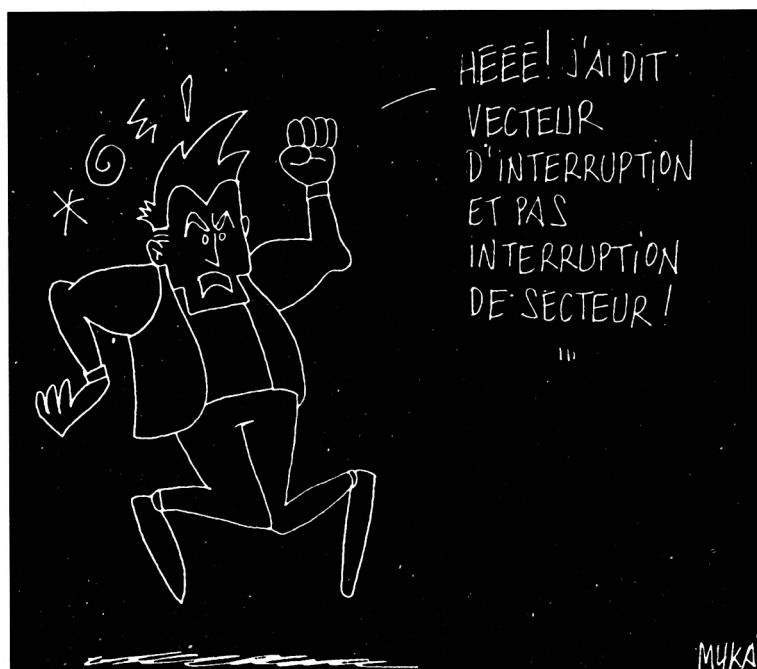 HÉÉÉ! J'AI DIT
VECTEUR
D'INTERRUPTION
ET PAS
INTERRUPTION
DE SECTEUR!
MUKA